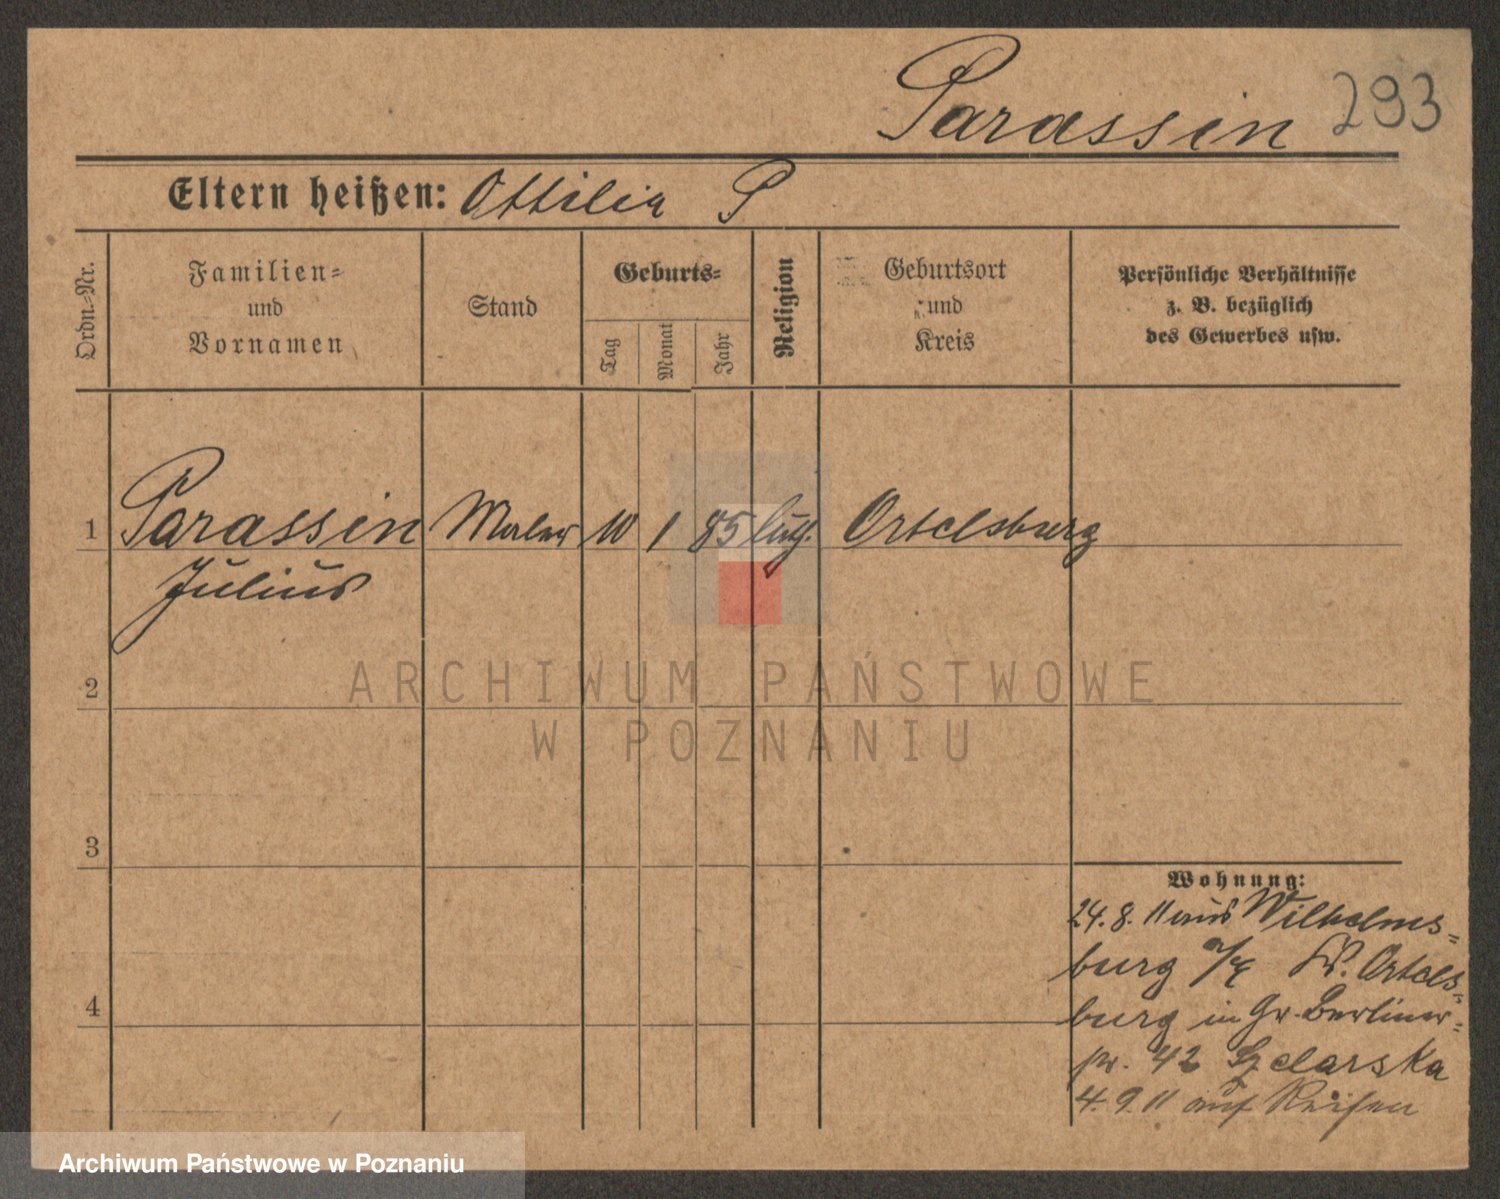 Parassin 293
Eltern heißen: Ottilie P
Ordn.-Nr.
Familien-
und
Vornamen
Stand
Geburts-
Tag
Monat
Jahr
Religion
Geburtsort
und
Kreis
Persönliche Verhältnisse
z. B. bezüglich
des Gewerbes usw.
1 Parassin Maler 10 1 85 luth. Ortelsburg
Julius
2
3
4
Wohnung:
24.8.11 aus Wilhelms-
burg Kr. Ortels-
burg in Gr. Berliner-
str. 42
4.9.11 auf Reisen
ARCHIWUM PAŃSTWOWE
W POZNANIU
Archiwum Państwowe w Poznaniu